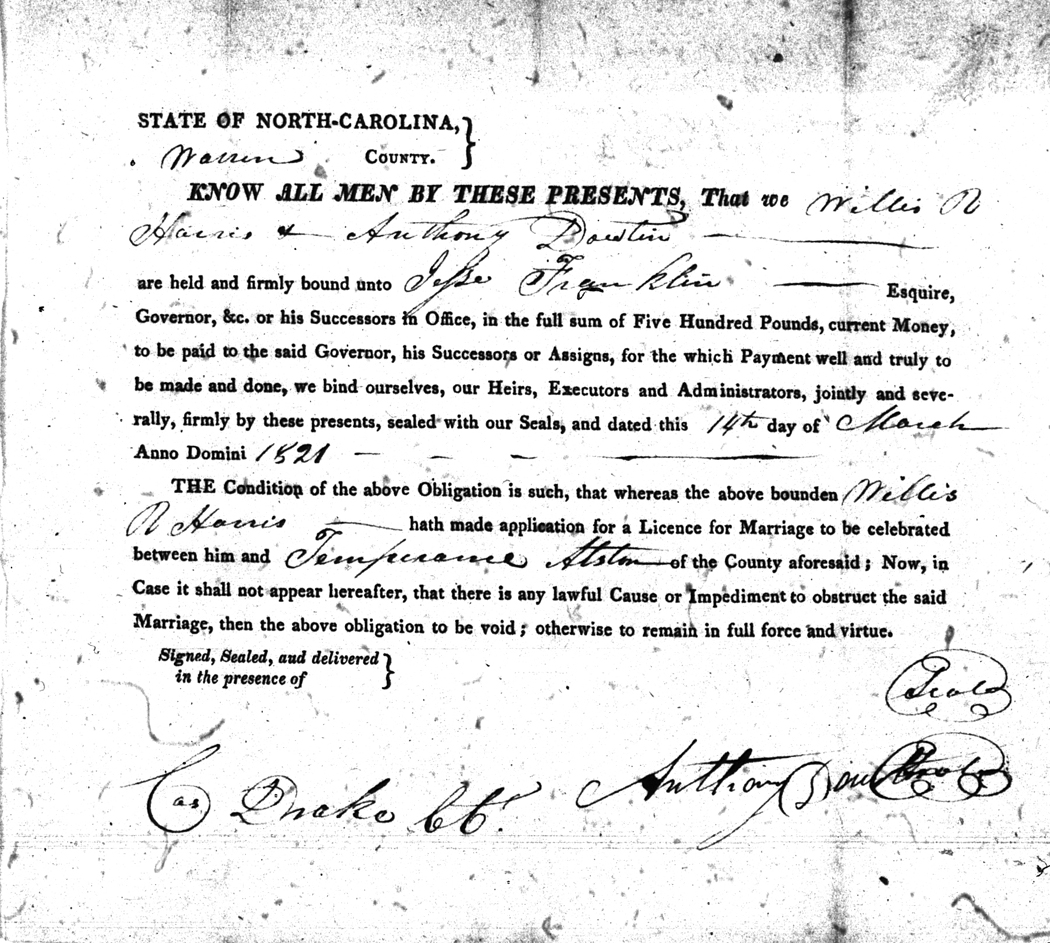 STATE OF NORTH-CAROLINA,
Warren COUNTY.
KNOW ALL MEN BY THESE PRESENTS, That we Willis R
Harris & Anthony Dowtin
are held and firmly bound unto Jesse Franklin Esquire,
Governor, &c. or his Successors in Office, in the full sum of Five Hundred Pounds, current Money,
to be paid to the said Governor, his Successors or Assigns, for the which Payment well and truly to
be made and done, we bind ourselves, our Heirs, Executors and Administrators, jointly and seve-
rally, firmly by these presents, sealed with our Seals, and dated this 14th day of March
Anno Domini 1821
THE Condition of the above Obligation is such, that whereas the above bounden Willis
R Harris hath made application for a Licence for Marriage to be celebrated
between him and Temperance Alston of the County aforesaid; Now, in
Case it shall not appear hereafter, that there is any lawful Cause or Impediment to obstruct the said
Marriage, then the above obligation to be void; otherwise to remain in full force and virtue.
Signed, Sealed, and delivered
in the presence of
Seal
Cas Drake Anthony Seal